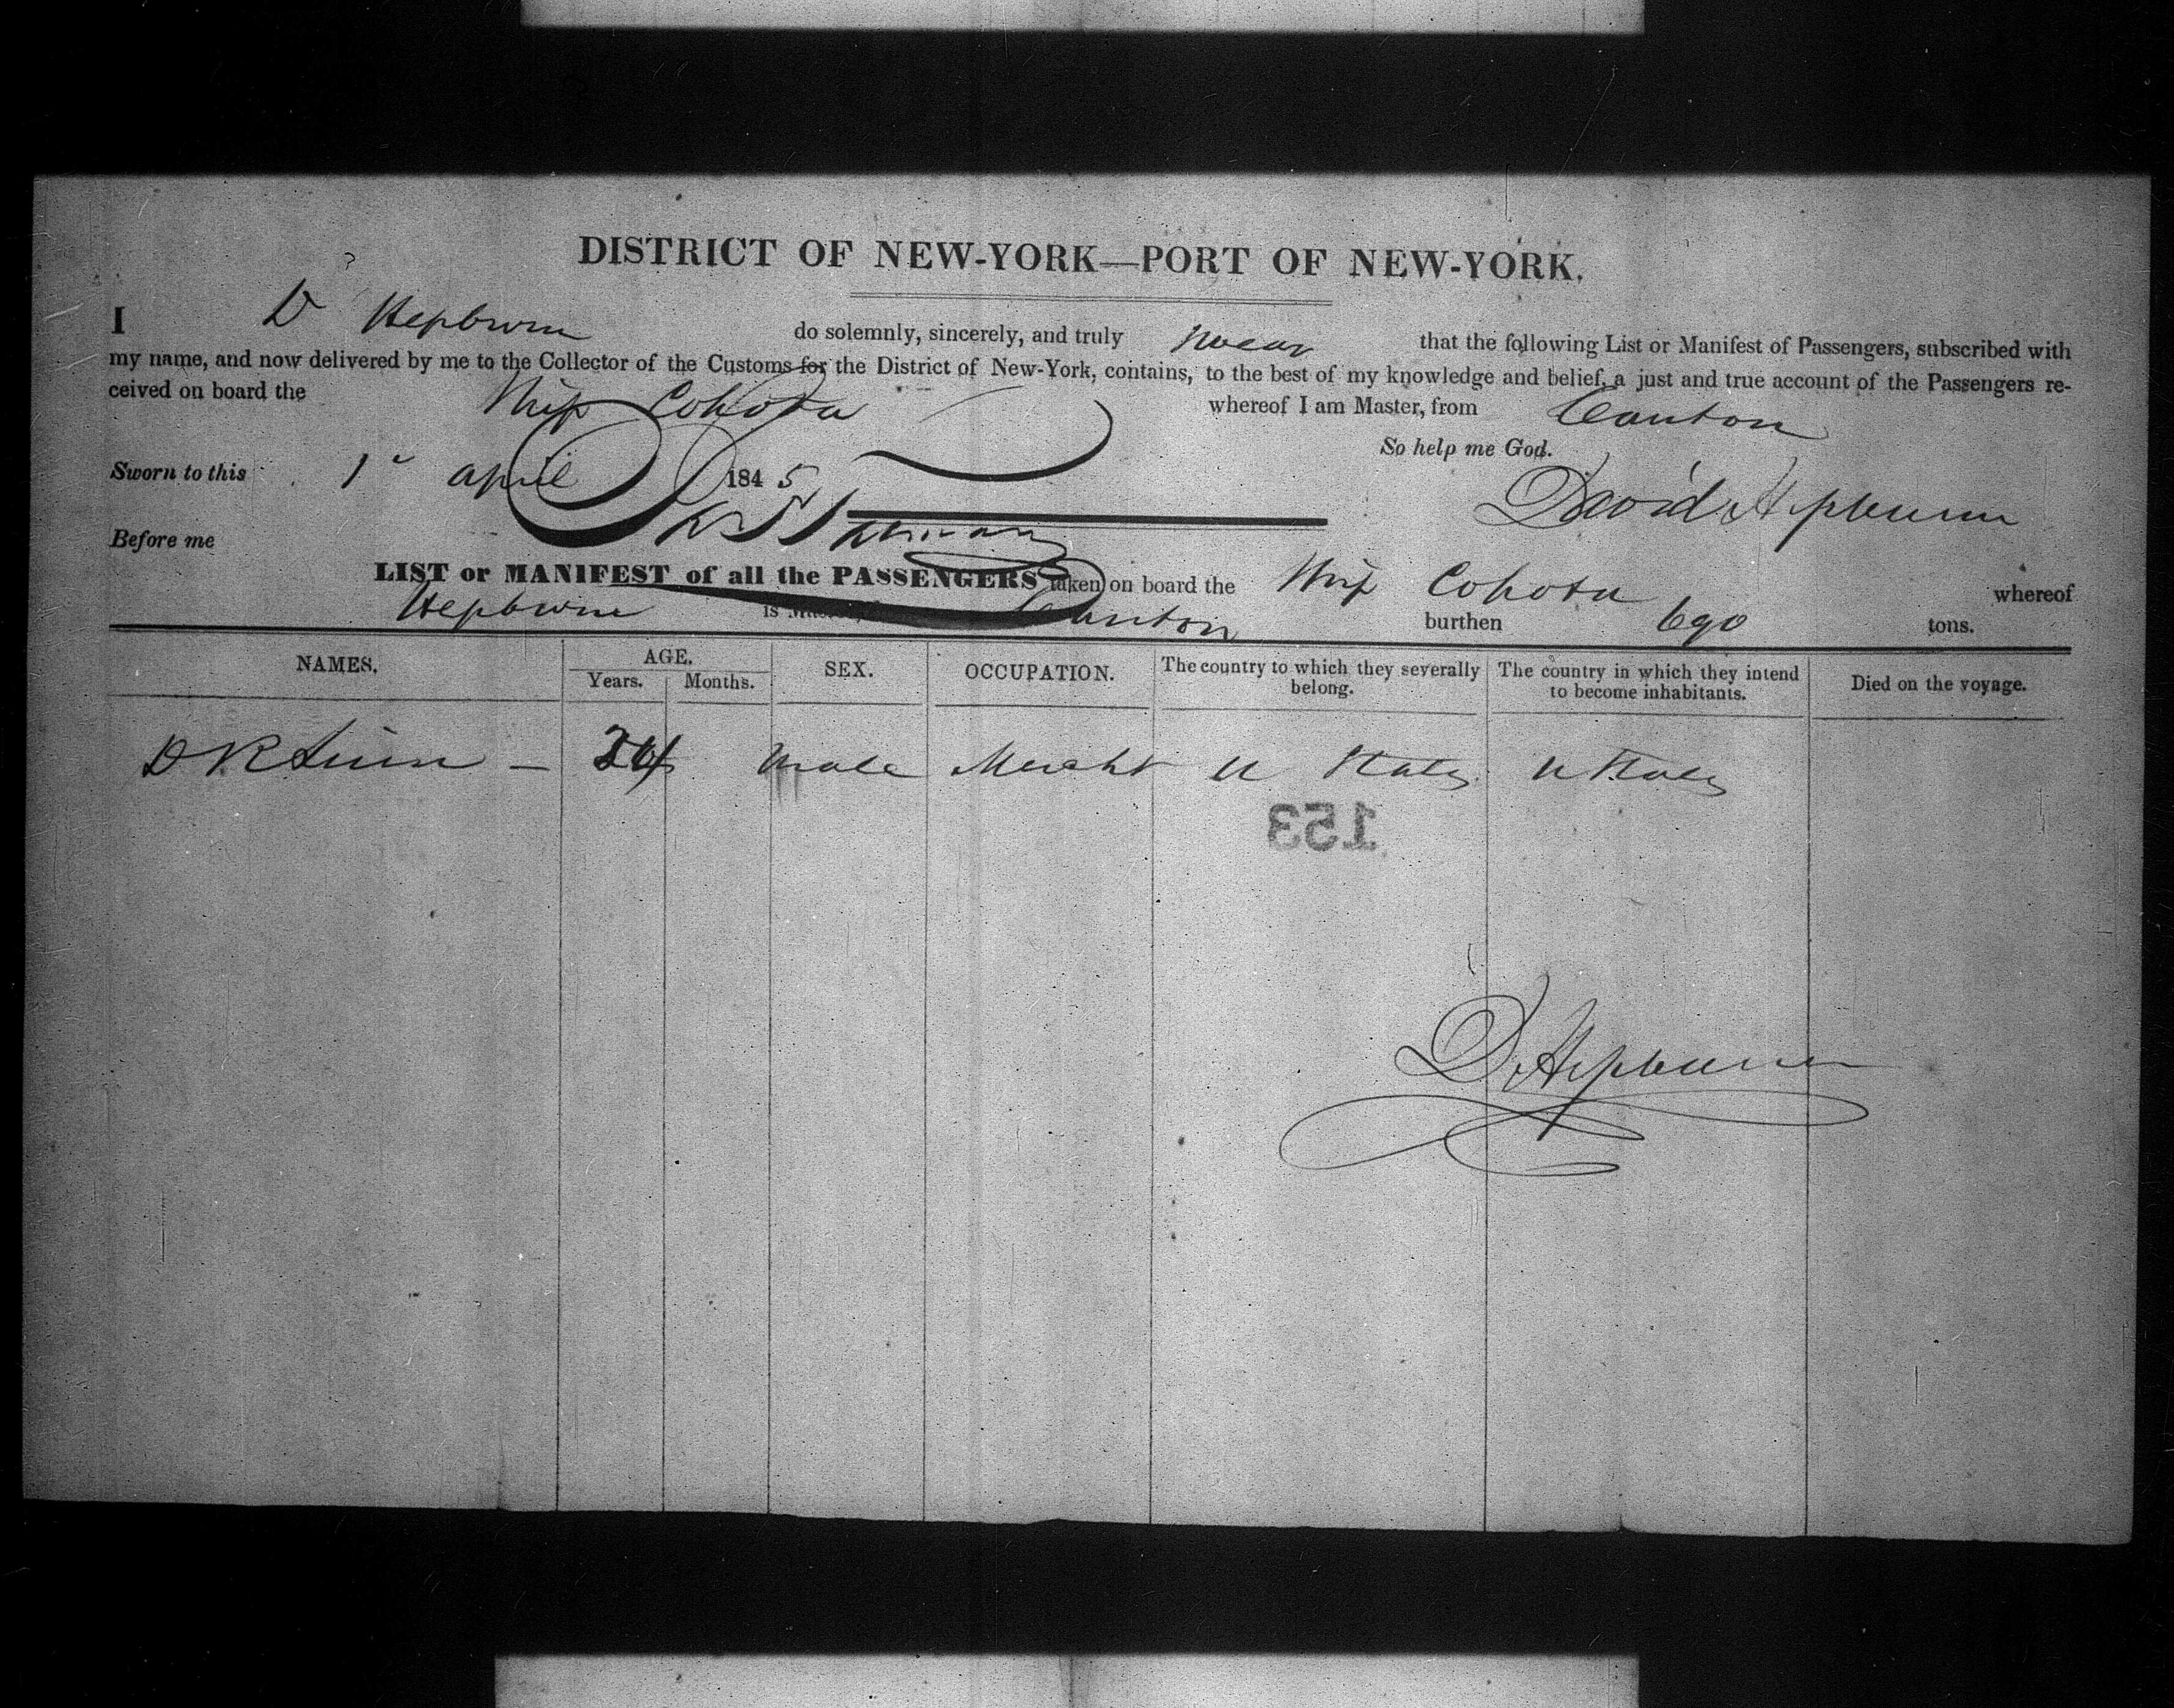 DISTRICT OF NEW-YORK—PORT OF NEW-YORK.
I D Hepburn do solemnly, sincerely, and truly swear that the following List or Manifest of Passengers, subscribed with
my name, and now delivered by me to the Collector of the Customs for the District of New-York, contains, to the best of my knowledge and belief, a just and true account of the Passengers re-
ceived on board the Ship Cohota whereof I am Master, from Canton
So help me God.
Sworn to this 1st april 1845
David Hepburn
Before me
LIST or MANIFEST of all the PASSENGERS taken on board the Ship Cohota whereof
Hepburn is Canton burthen 690 tons.
NAMES. AGE. SEX. OCCUPATION. The country to which they severally belong. The country in which they intend to become inhabitants. Died on the voyage.
Years. Months.
D R 24 Male Mercht U States U States
153
D Hepburn